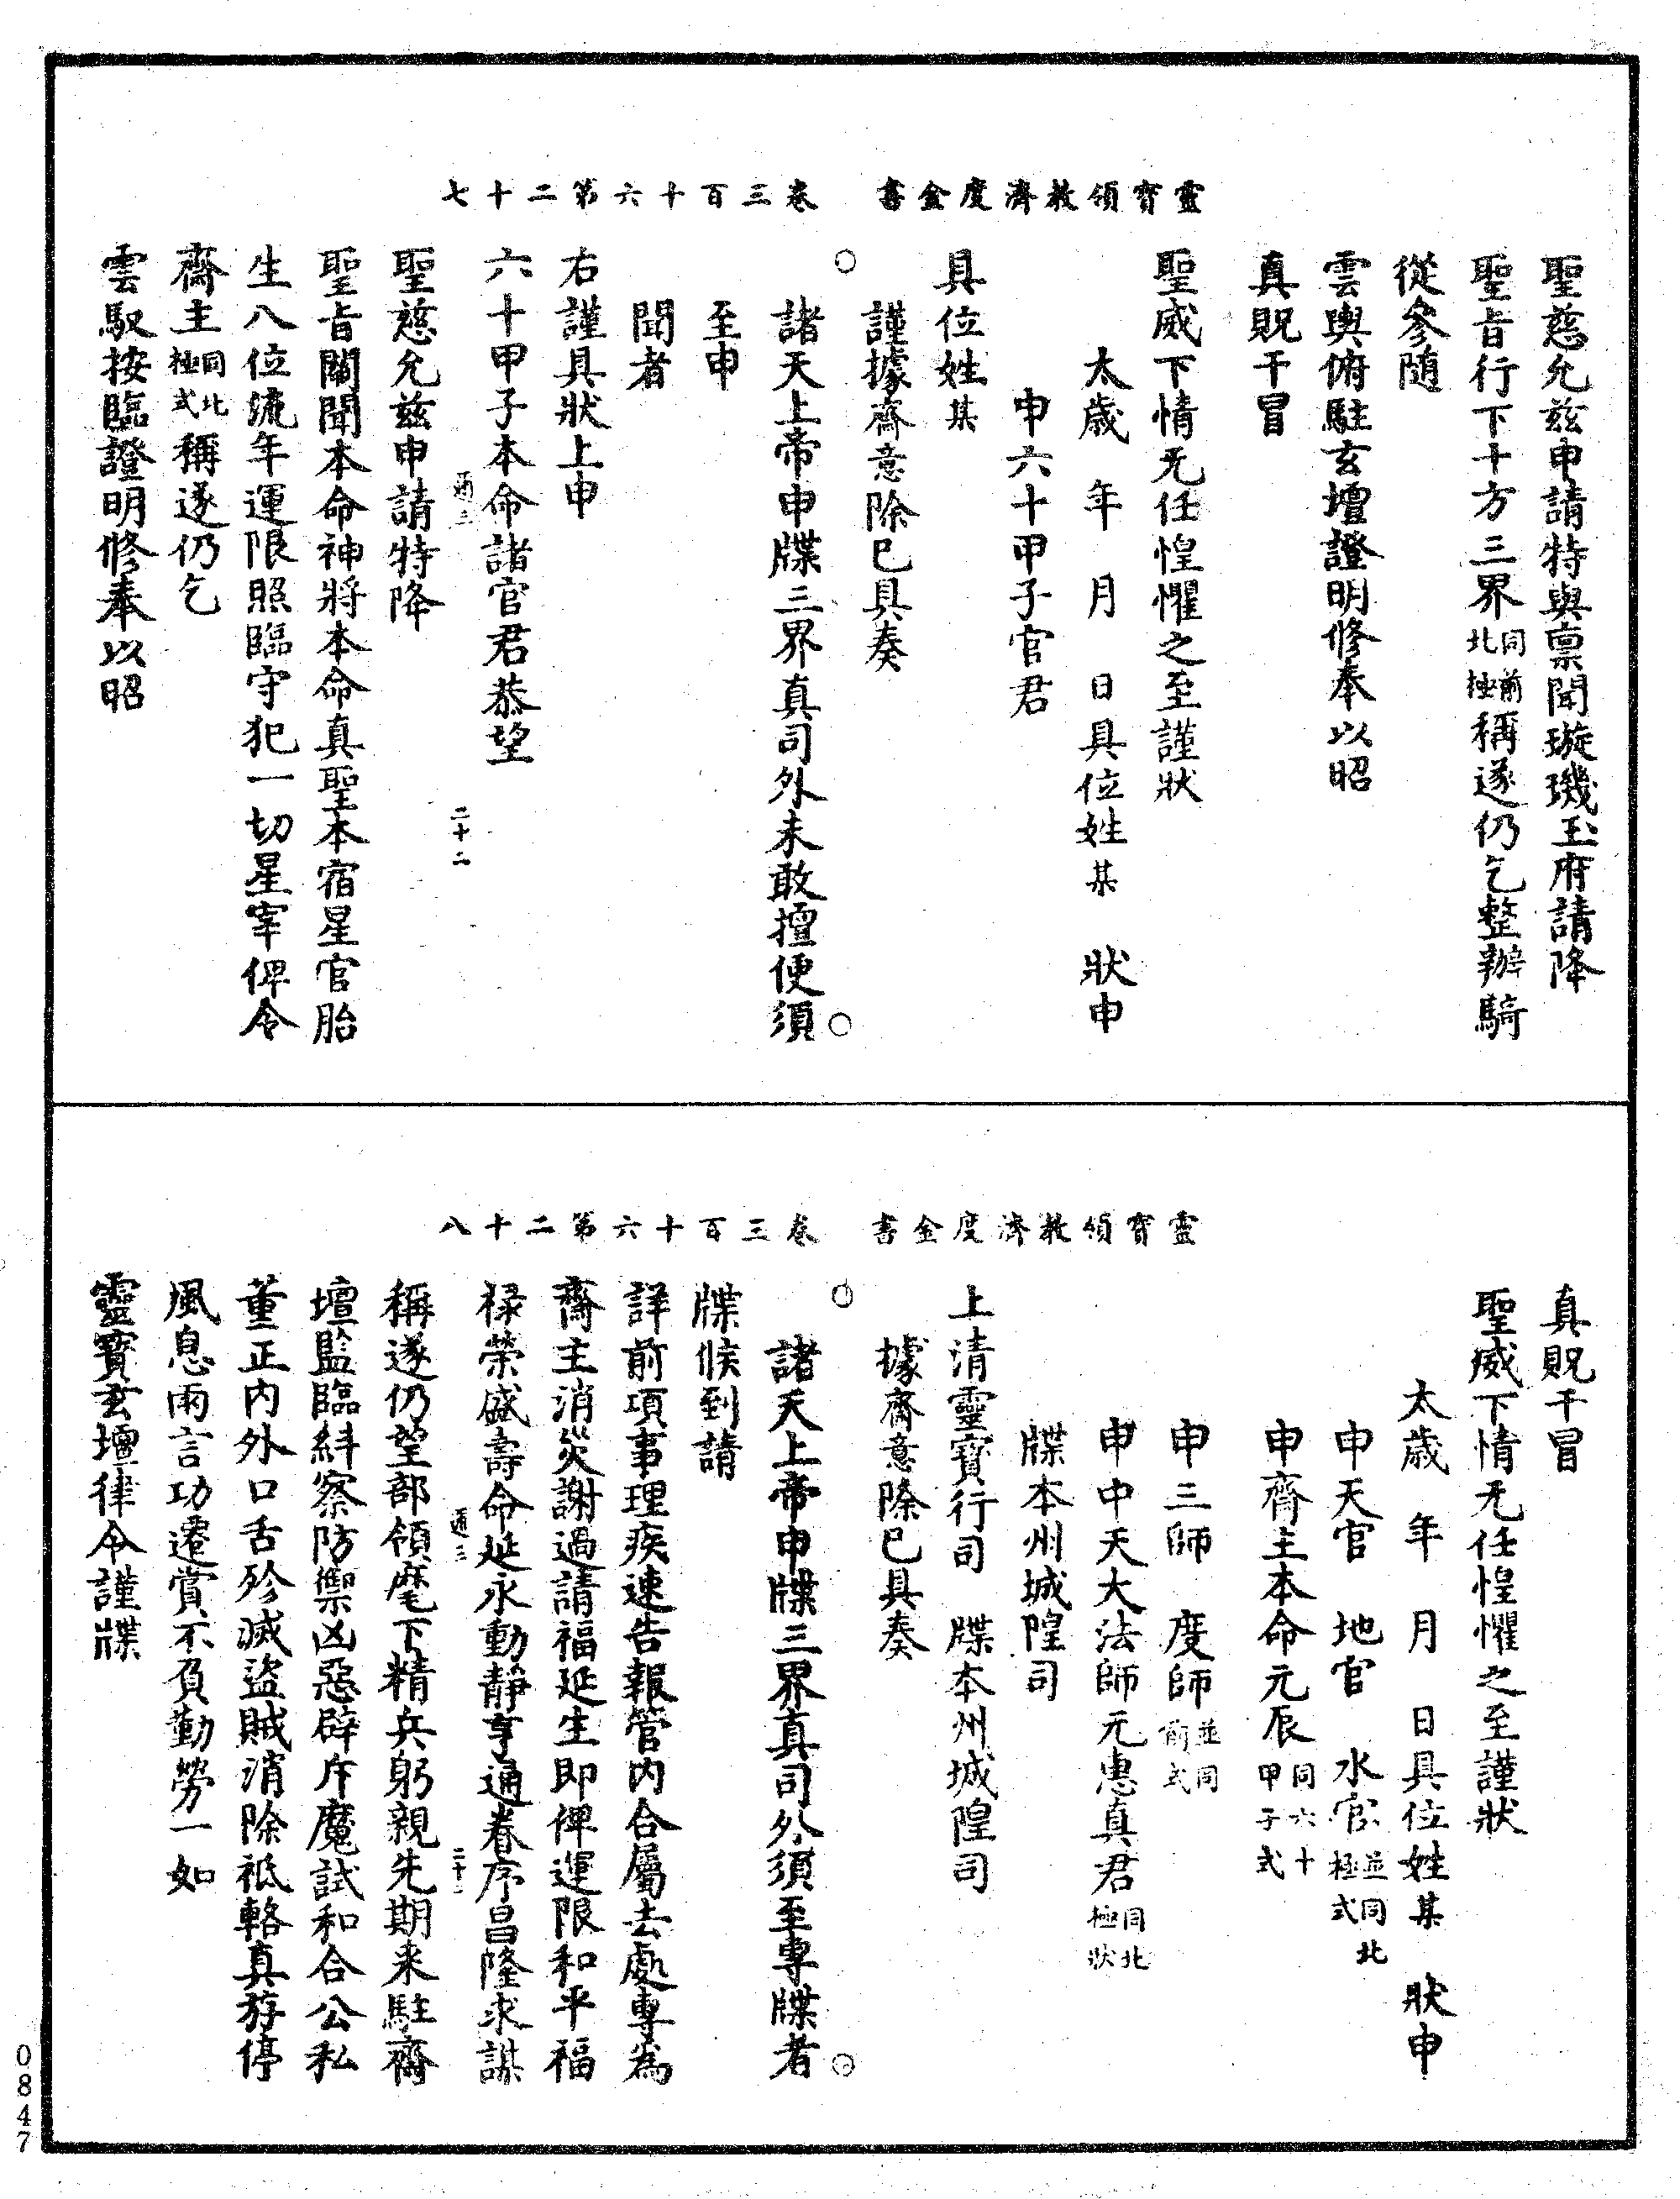 靈寶領教濟度金書　卷三百十六第二十七
聖慈允兹申請特與禀聞璇璣玉府請降
聖旨行下十方三界同前北極稱遂仍乞整辦騎
從參随
雲輿俯駐玄壇證明修奉以昭
真貺干冒
聖威下情无任惶懼之至謹狀
太歲　年　月　日具位姓某　狀申
申六十甲子官君
具位姓某
謹據齋意除已具奏
諸天上帝申申牒三界真司外未敢擅便須
至申
聞者
右謹具狀上申
六十甲子本命諸官君恭望
通三　二十二
聖慈允兹申請特降
聖旨關聞本命神將本命真聖本宿星官胎
生八位流年運限照臨守犯一切星宰俾令
齋主同北極式稱遂仍乞
雲馭按臨證明修奉以昭
靈寶領教濟度金書　卷三百十六第二十八
真貺干冒
聖威下情无任惶懼之至謹狀
太歲　年　月　日具位姓某　狀申
申天官　地官　水官並同北極式
申齊主本命元辰同六十甲子式
申三師　度師並同前式
申中天大法師元惠真君同北極狀
牒本州城隍司
上清靈寶行司　牒本州城隍司
據齋意除已具奏
諸天上帝申申牒三界真司外須至專牒者
牒候到請
詳前項事理疾速告報管内合屬去處專為
齋主消災謝過請福延生即俾運限和平福
祿榮盛壽命延永動静亨通眷序昌隆求謀
通三
稱遂仍望部領麾下精兵躬親先期来駐齋
壇監臨糾察防禦凶惡辟斥魔試和合公私
董正内外口舌殄滅盜賊消除祗輅真斿停
風息雨言功遷賞不負勤勞一如
靈寶玄壇律令謹牒
0847